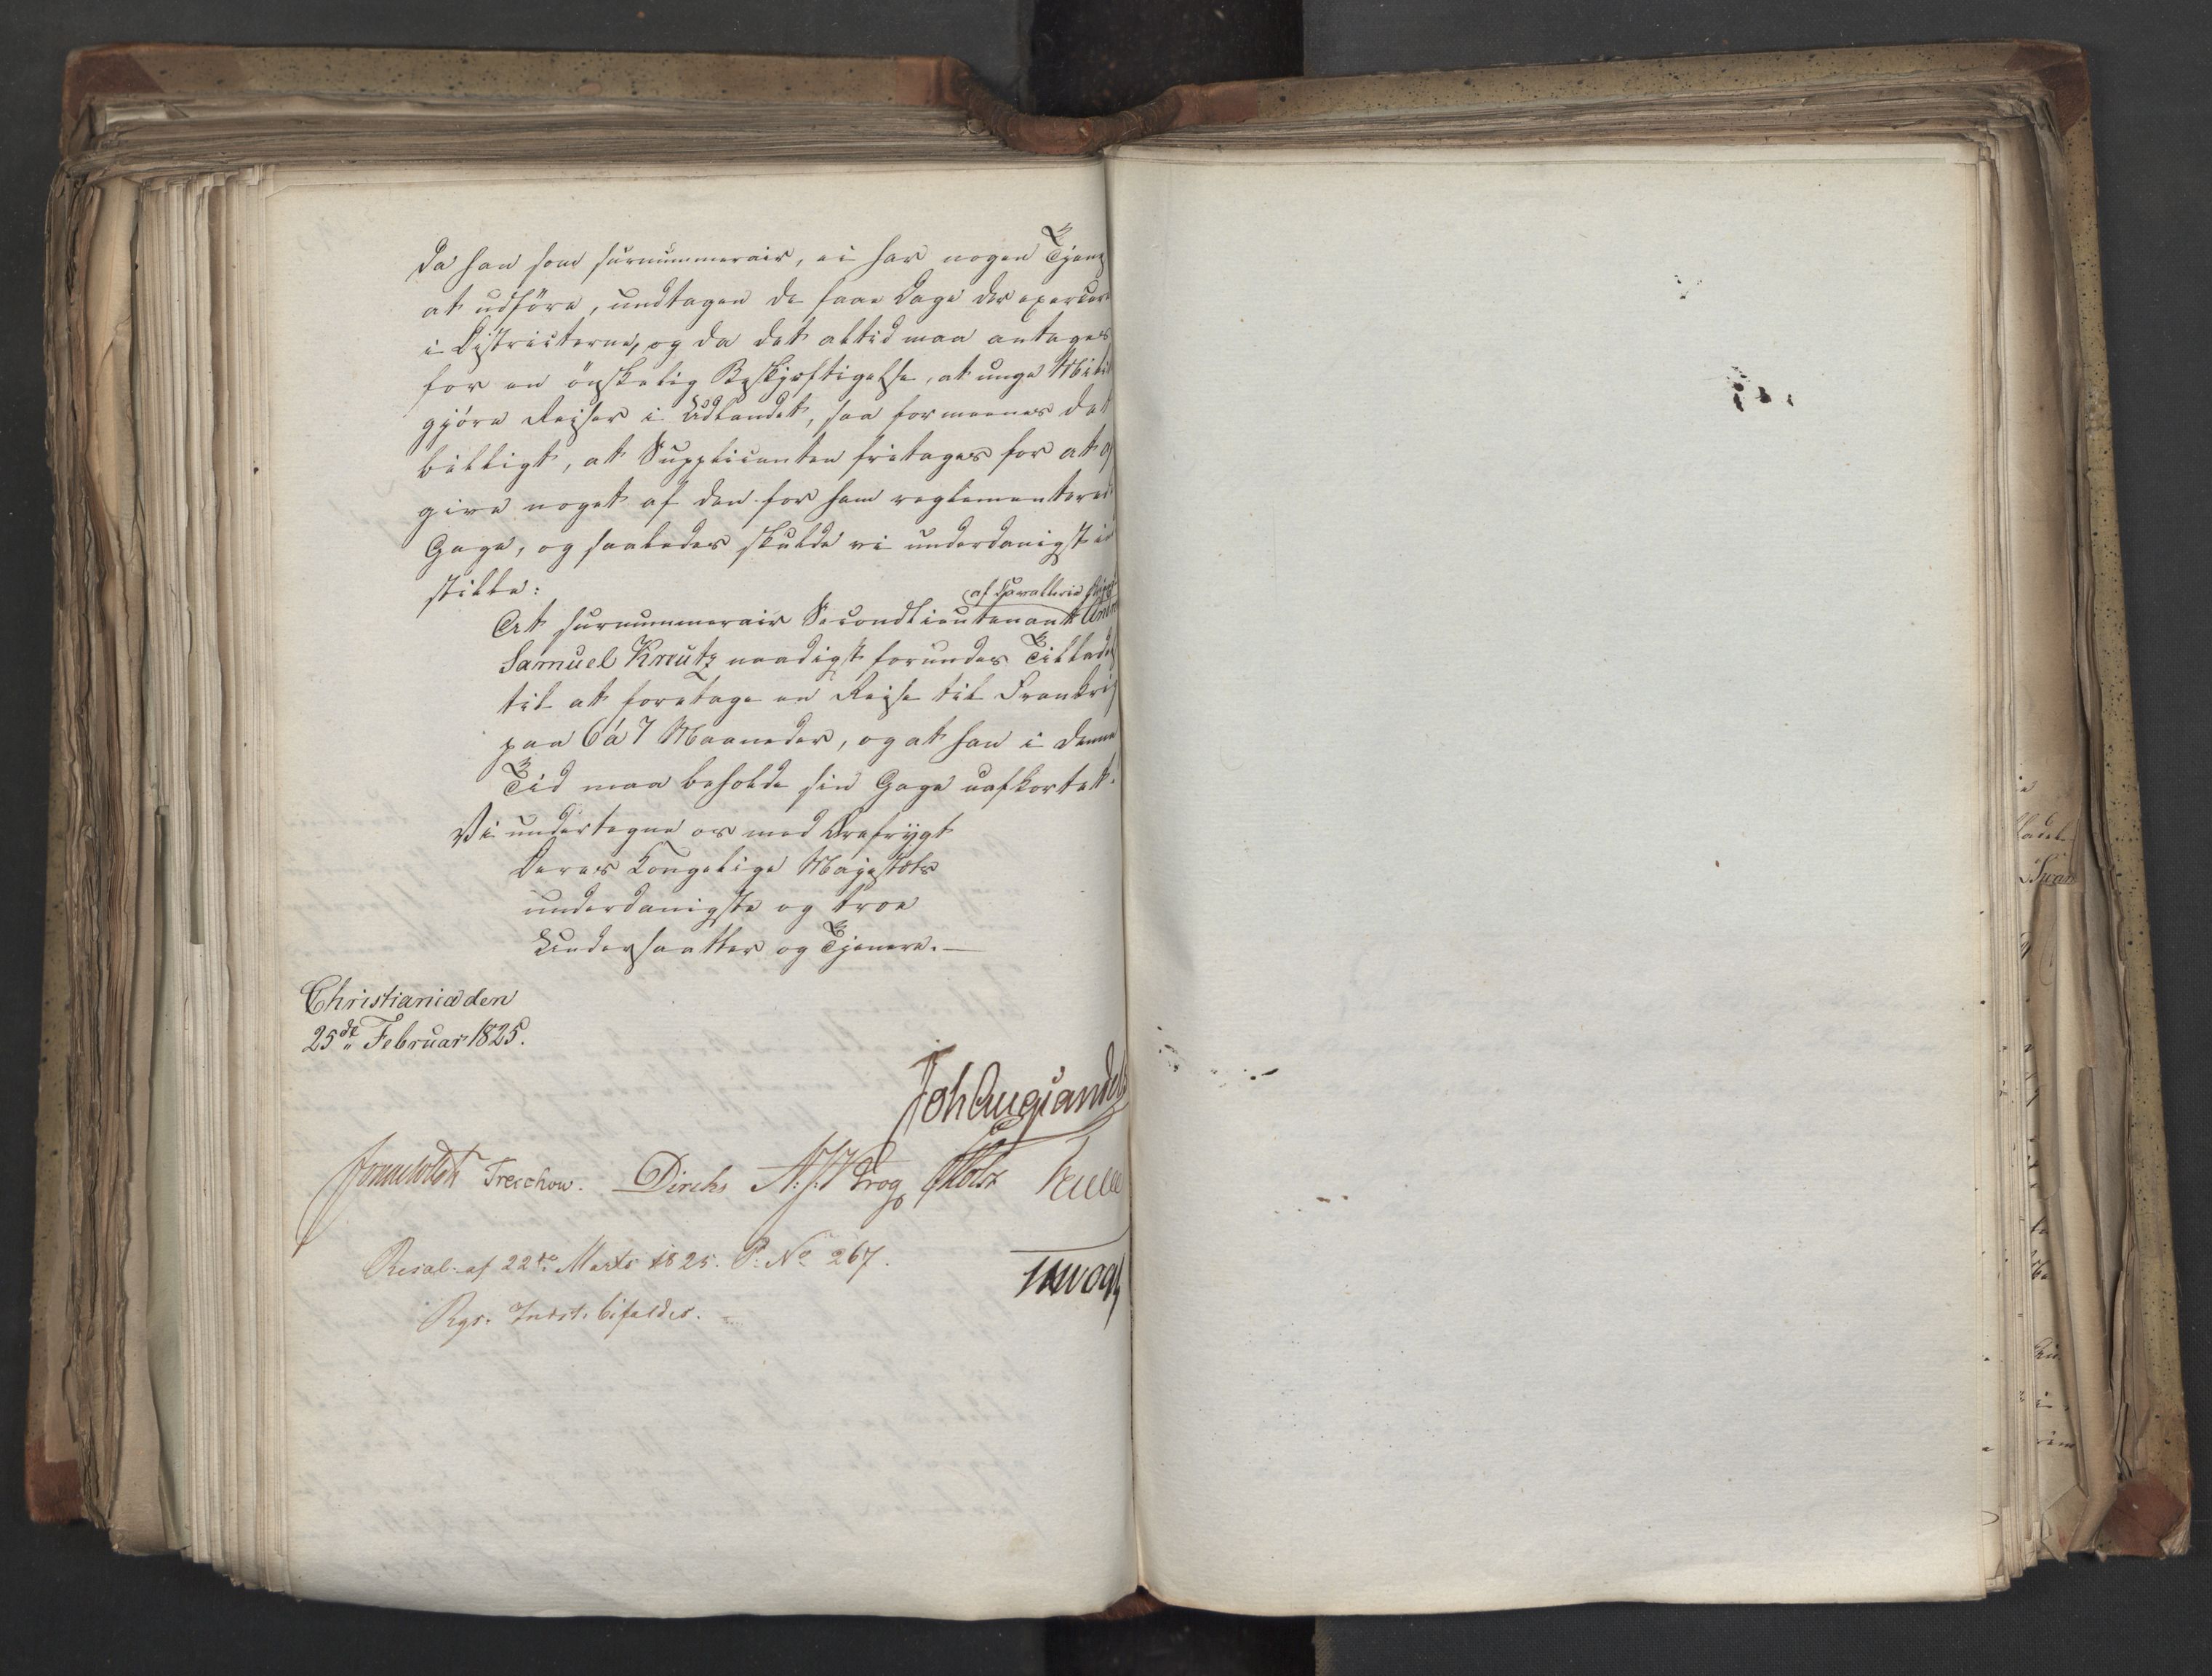 da han som surnummerair, ei har nogen Tjen
at udföre, undtagen de faae Dage der exercere
i Districterne, og da det altid maa antages
for en önskelig Beskjæftigelse, at unge Milit
gjöre Reiser i Udlandet, saa formeenes det
billigt, at Supplicanten fritages for at
give noget af den for ham reglementered
Gage, og saaledes skulde vi underdanigst in
stille:
af Cavallerie
At surnummerair Secondlieutenant
Samuel Kreutz naadigst forundes Tillad
til at foretage en Reise til Frankrig
paa 6 á 7 Maaneder, og at han i denne
Tid maa beholde sin Gage uafkortet.
Vi undertegne os med Ærefrygt
Deres Kongelige Majestæts
underdanigste og troe
Undersaatter og Tjenere. —
Christiania den
25de Februar 1825.
Joh Aug Sandels
Sommerhielm Treschow. Diriks A: J: Krog Holst
Resol. af 22de Marts 1825. P: No 267.
Rgs. Indst. bifaldes.